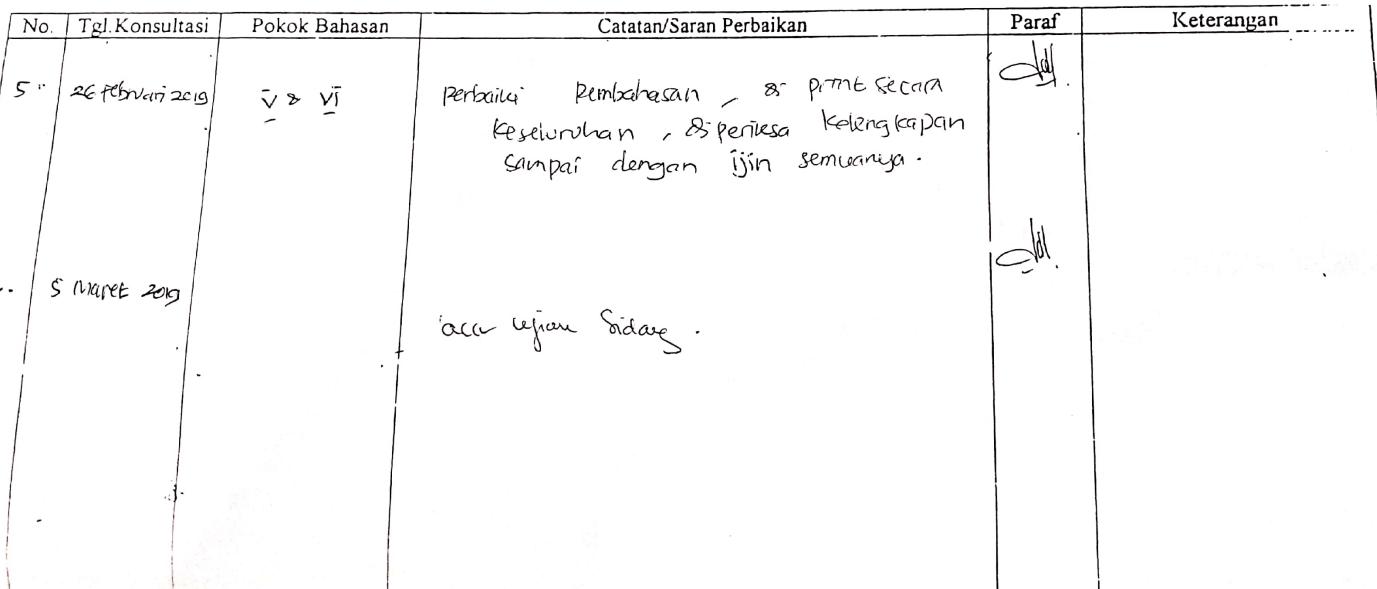 No. Tgl.Konsultasi Pokok Bahasan Catatan/Saran Perbaikan Paraf Keterangan
5 26 Februari 2019 V & VI perbaiki Pembahasan, & print secara
keseluruhan, & periksa kelengkapan
sampai dengan ijin semuanya.
5 Maret 2019
acc ujian Sidang.